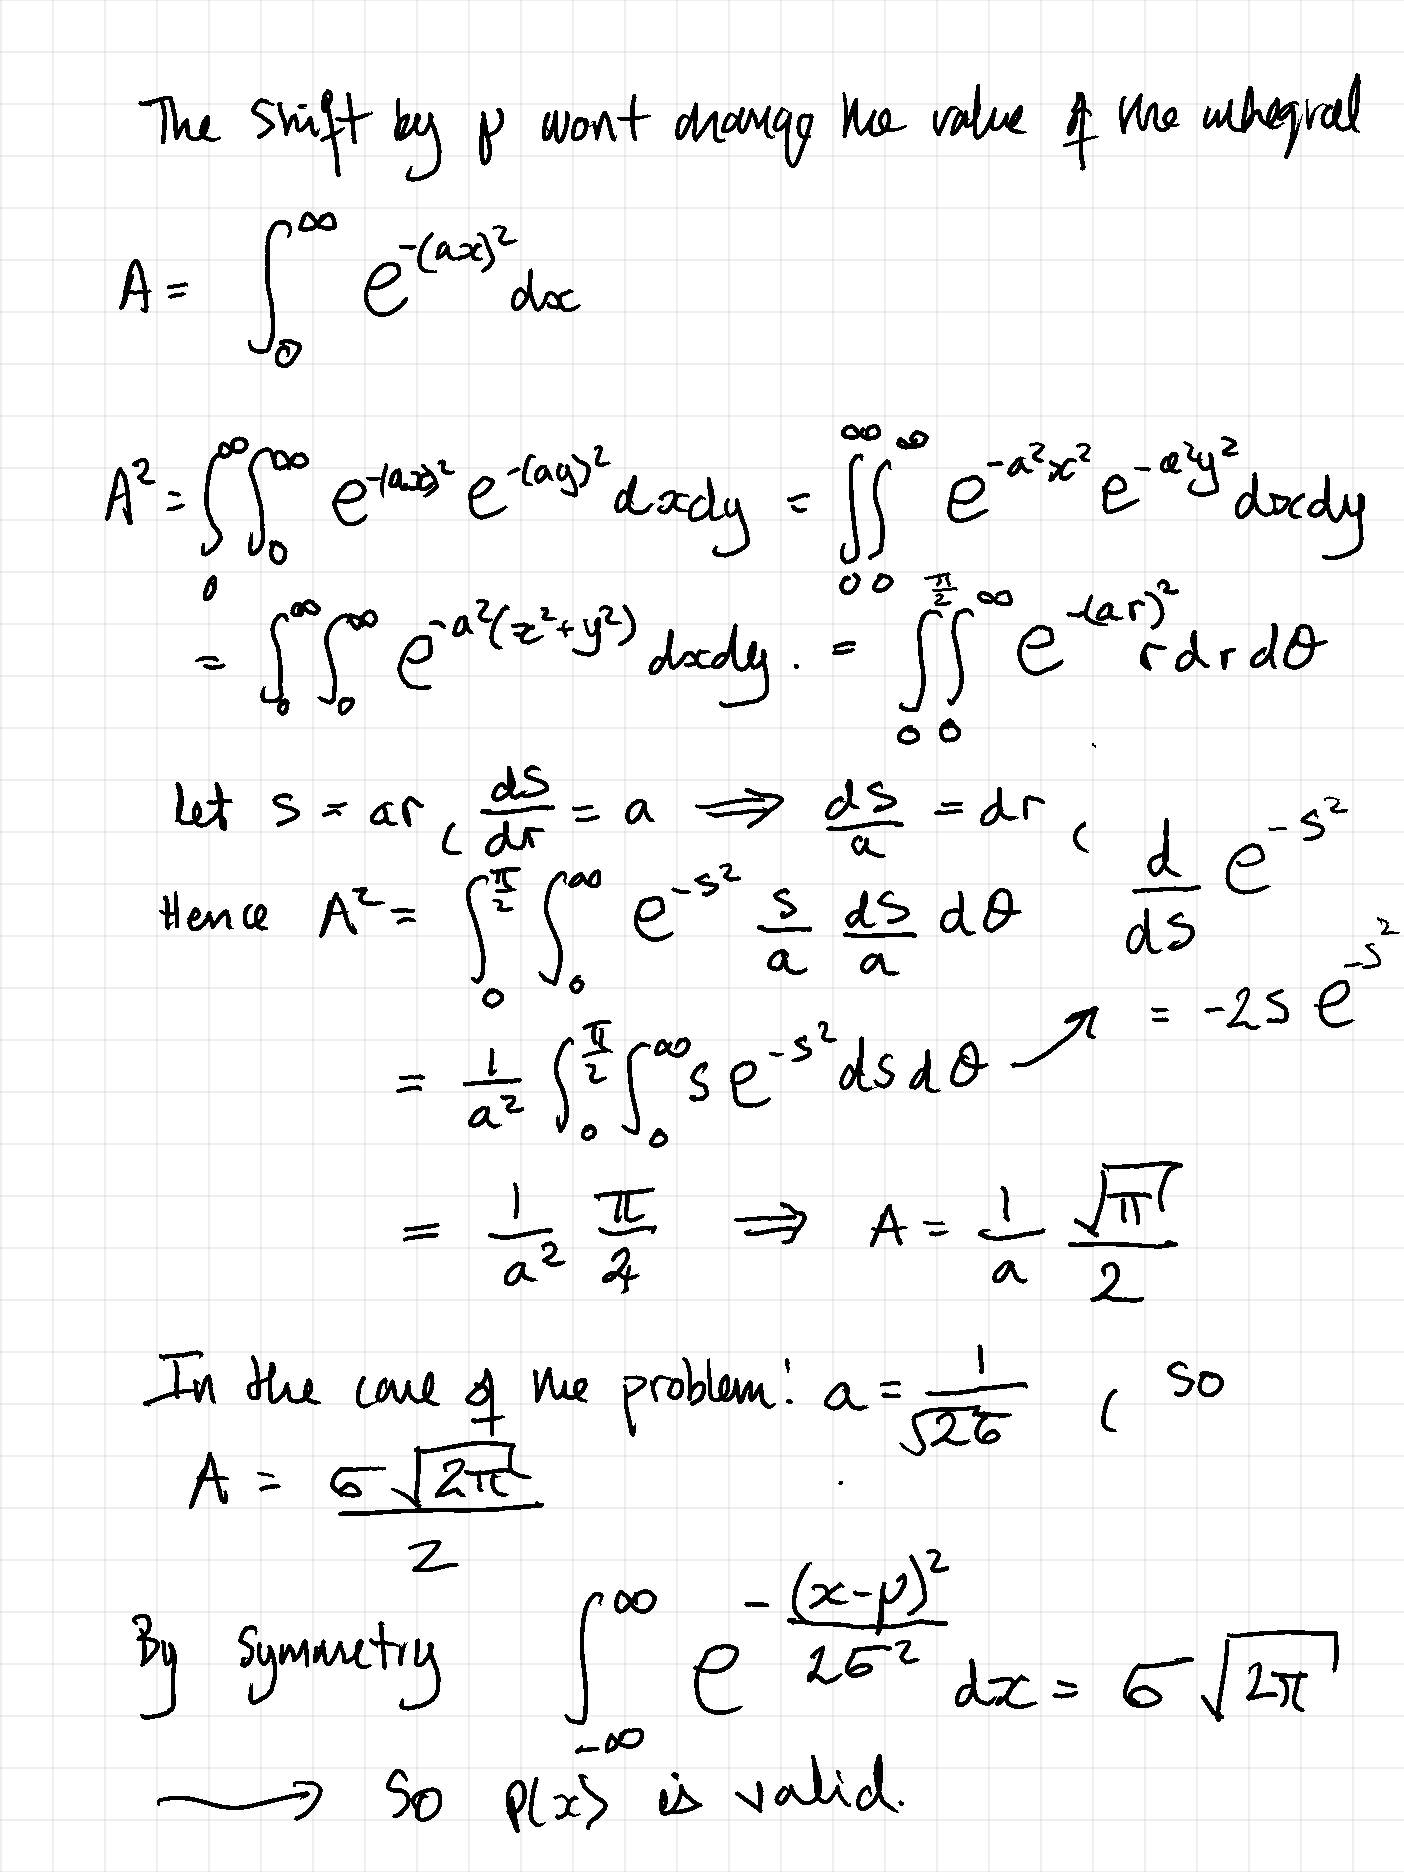 The shift by μ wont change the value of the integral
A = ∫_0^∞ e^{-(ax)^2} dx
A^2 = ∫_0^∞ ∫_0^∞ e^{-(ax)^2} e^{-(ay)^2} dxdy = ∫_0^∞ ∫_0^∞ e^{-a^2x^2} e^{-a^2y^2} dxdy
= ∫_0^∞ ∫_0^∞ e^{-a^2(x^2+y^2)} dxdy. = ∫_0^{π/2} ∫_0^∞ e^{-(ar)^2} r dr dθ
Let s = ar, ds/dr = a ⟹ ds/a = dr, d/ds e^{-s^2}
Hence A^2 = ∫_0^{π/2} ∫_0^∞ e^{-s^2} s/a ds/a dθ
= -2s e^{-s^2}
= 1/a^2 ∫_0^{π/2} ∫_0^∞ s e^{-s^2} ds dθ ↗
= 1/a^2 π/4 ⟹ A = 1/a √π/2
In the case of the problem: a = 1/(√2σ), so
A = σ√(2π)/2
By symmetry ∫_{-∞}^∞ e^{-(x-μ)^2/2σ^2} dx = σ√(2π)
⟶ So p(x) is valid.